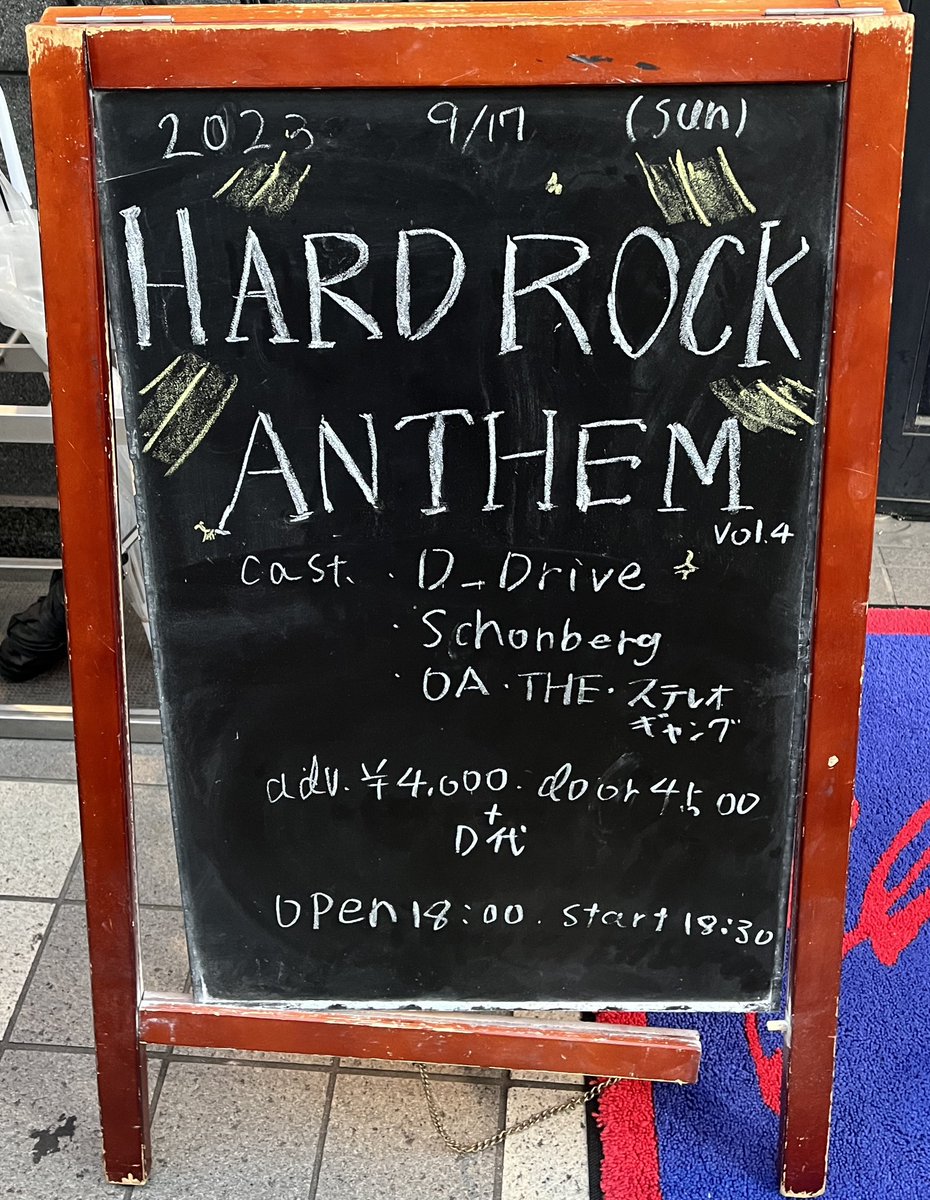 2023 9/17 (sun)
HARD ROCK
ANTHEM
vol.4
cast. ・D_Drive
・Schonberg
・OA・THE・ステレオ
ギャング
adv.¥4,000. door 4,500
+
D代
open 18:00. start 18:30